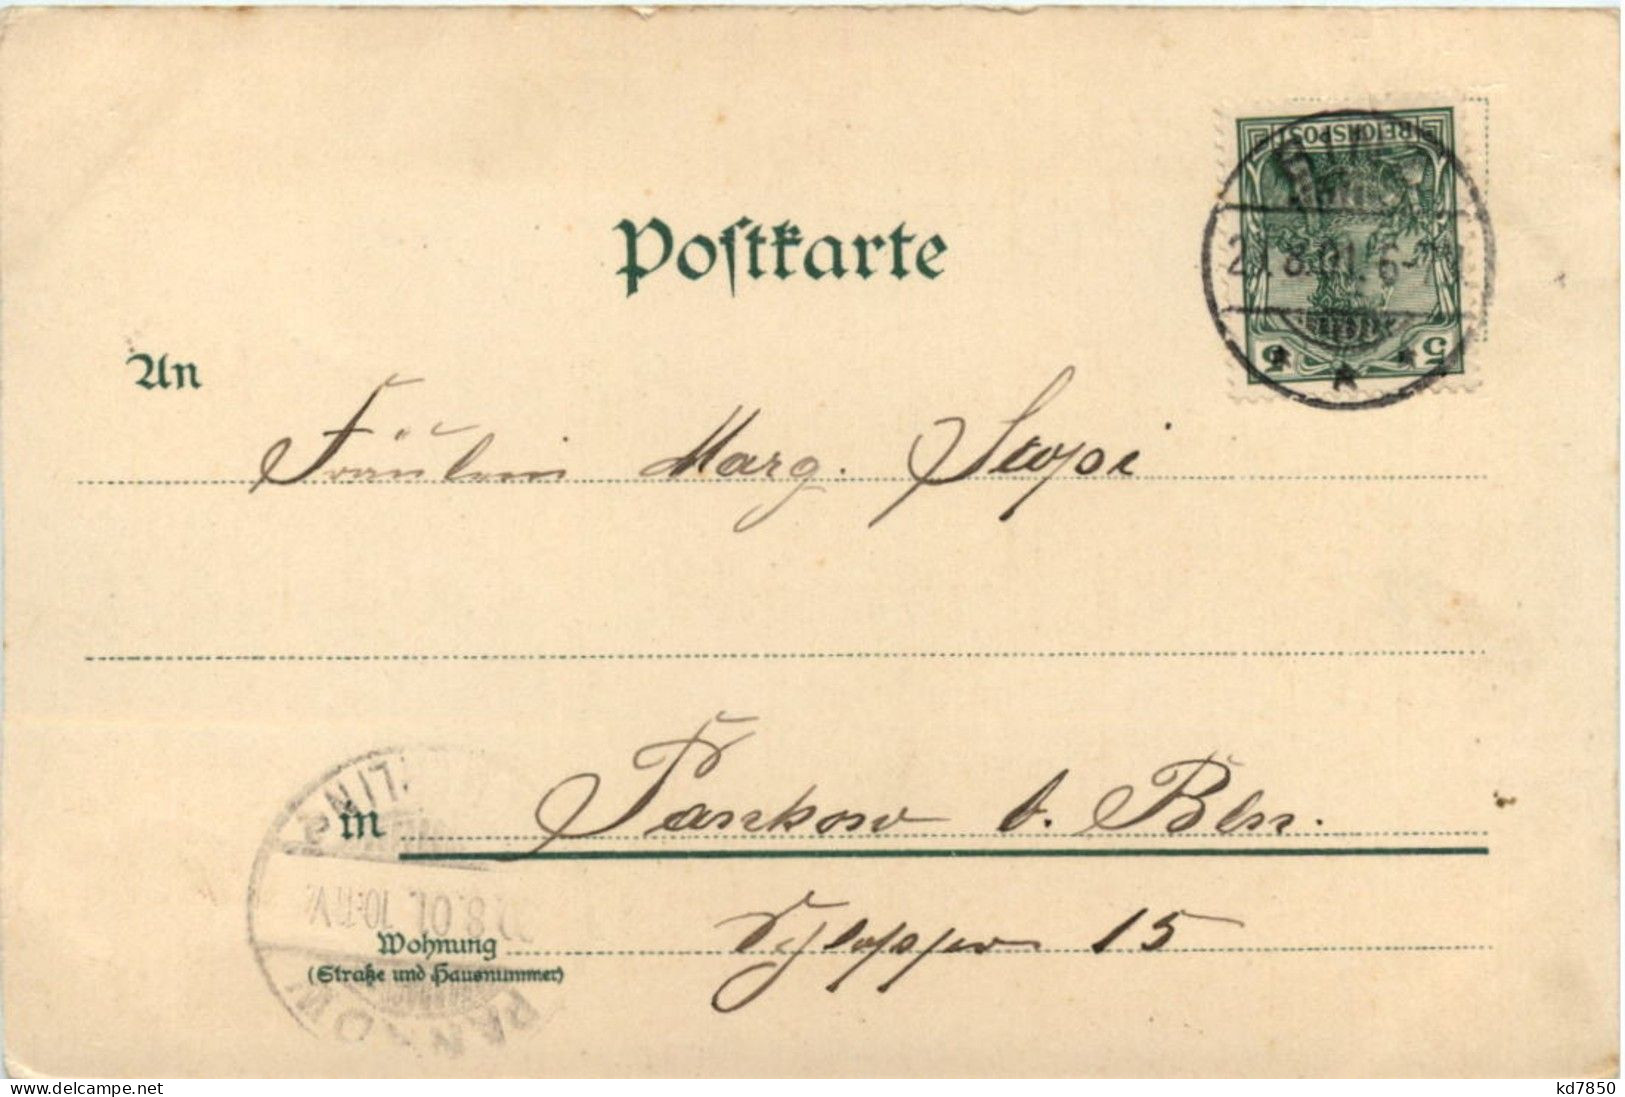 Postkarte
REICHSPOST
8.01. 6-
5 5
An
Fräulein Marg.
in Pankow b. Bln.
LIN
8.01. 10-11V
Wohnung
(Straße und Hausnummer)
15
PANKOW
www.delcampe.net
kd7850